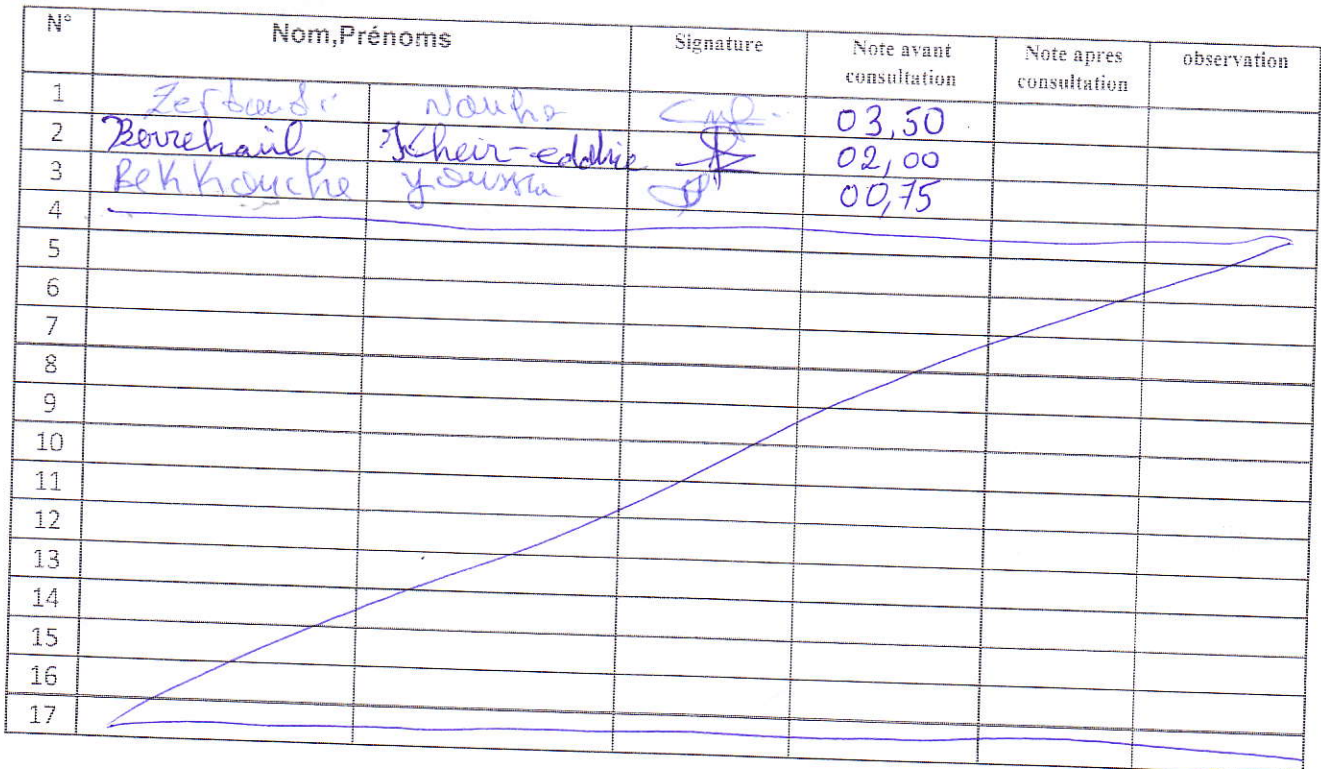 N° Nom,Prénoms Signature Note avant consultation Note apres consultation observation
1 03,50
2 Kheir-eddine 02,00
3 Bekkouche youssra 00,75
4
5
6
7
8
9
10
11
12
13
14
15
16
17